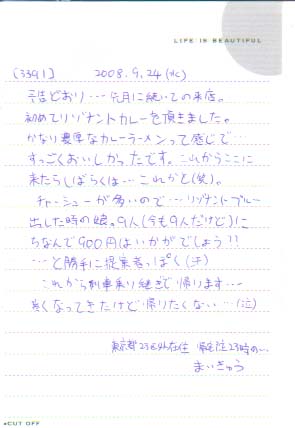 LIFE IS BEAUTIFUL
[3391] 2008.9.24(水)
予告どおり…先月に続いての来店。
初めてリゾナントカレーを頂きました。
かなり濃厚なカレーラーメンって感じで…
すっごくおいしかったです。これからここに
来たらしばらくは…これかと(笑)。
チャーシューが多いので…リゾナントブルー
出した時の娘。9人(今も9人だけど)に
ちなんで900円はいかがでしょう!!
…と勝手に提案者っぽく(汗)
これから列車乗り継ぎで帰ります…
長くなってきたけど帰りたくない…(泣)
東京都23区外在住 帰宅23時の…
まいきゅう
●CUT OFF